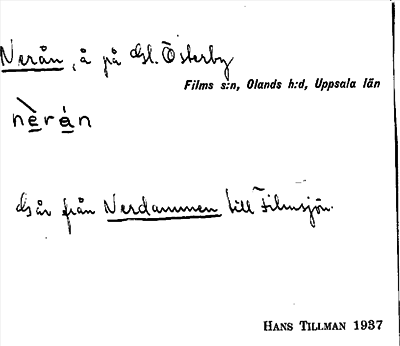 Nerån, å på Gl. Österby
Films s:n, Olands h:d, Uppsala län
nè̱rá̱n
Går från Nerdammen till Filmsjön.
HANS TILLMAN 1937